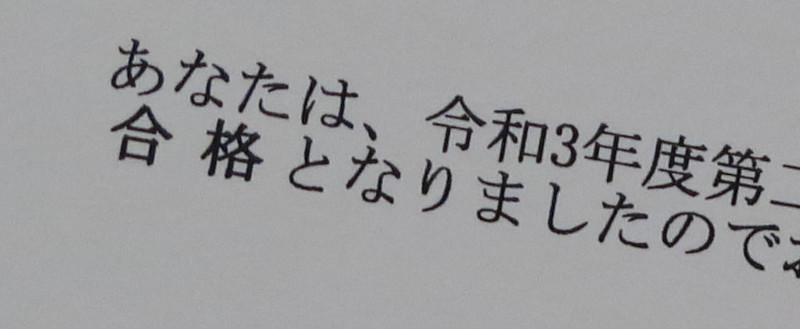 あなたは、令和3年度第二
合格となりましたのでお